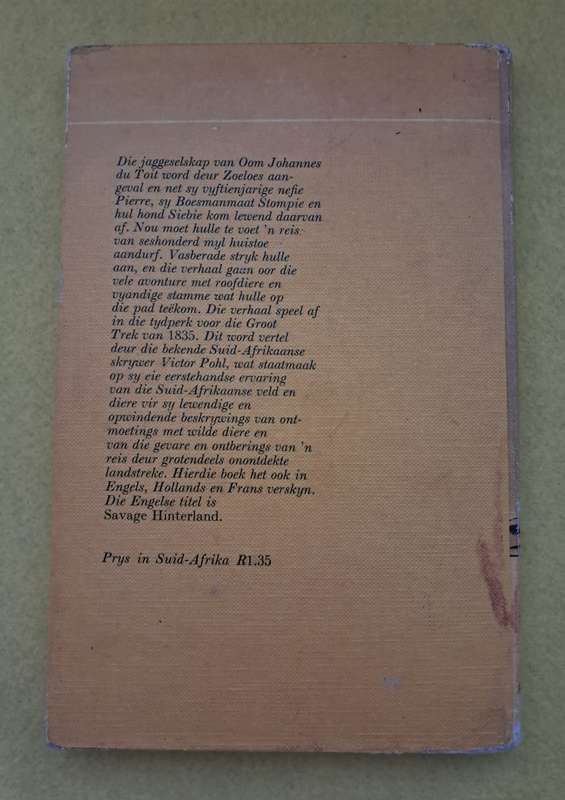 Die jaggeselskap van Oom Johannes
du Toit word deur Zoeloes aan-
geval en net sy vyftienjarige nefie
Pierre, sy Boesmanmaat Stompie en
hul hond Siebie kom lewend daarvan
af. Nou moet hulle te voet 'n reis
van seshonderd myl huistoe
aandurf. Vasberade stryk hulle
aan, en die verhaal gaan oor die
vele avonture met roofdiere en
vyandige stamme wat hulle op
die pad teëkom. Die verhaal speel af
in die tydperk voor die Groot
Trek van 1835. Dit word vertel
deur die bekende Suid-Afrikaanse
skrywer Victor Pohl, wat staatmaak
op sy eie eerstehandse ervaring
van die Suid-Afrikaanse veld en
diere vir sy lewendige en
opwindende beskrywings van ont-
moetings met wilde diere en
van die gevare en ontberings van 'n
reis deur grotendeels onontdekte
landstreke. Hierdie boek het ook in
Engels, Hollands en Frans verskyn.
Die Engelse titel is
Savage Hinterland.
Prys in Suid-Afrika R1.35